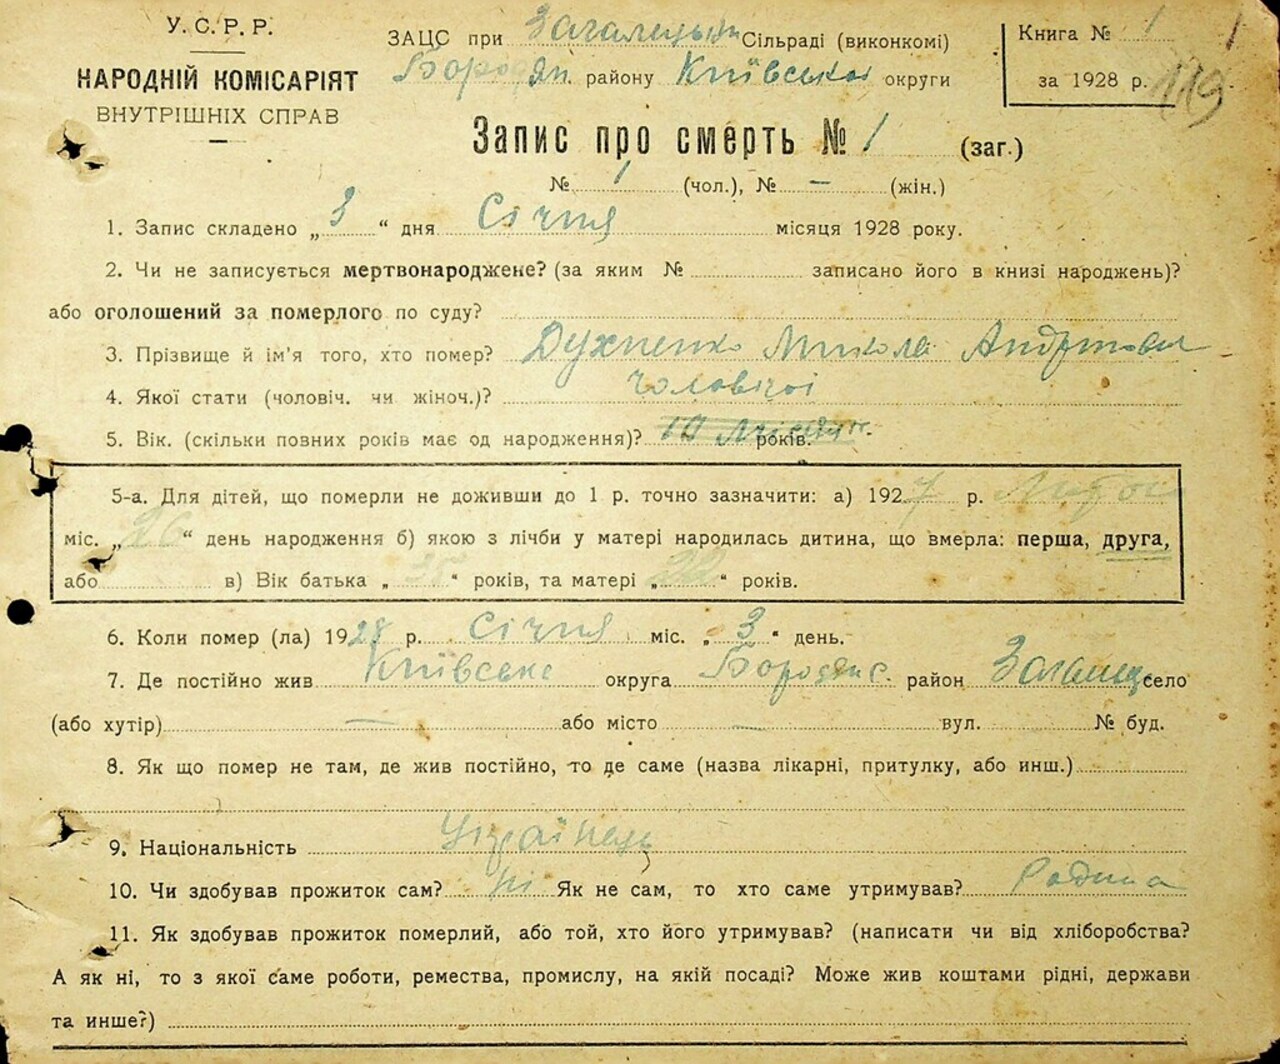 У.С.Р.Р.
НАРОДНІЙ КОМІСАРІЯТ
ВНУТРІШНІХ СПРАВ
ЗАЦС при Загалецькій Сільраді (виконкомі)
Бородян. району Київської округи
Книга № 1 1
за 1928 р. 119
Запис про смерть № 1 (заг.)
№ 1 (чол.), № — (жін.)
1. Запис складено „ 3 “ дня Січня місяця 1928 року.
2. Чи не записується мертвонароджене? (за яким № записано його в книзі народжень)?
або оголошений за померлого по суду?
3. Прізвище й ім'я того, хто помер? Духненко Микола Андріїович
4. Якої стати (чоловіч. чи жіноч.)? чоловічої
5. Вік. (скільки повних років має од народження)? 10 місяців років.
5-а. Для дітей, що померли не доживши до 1 р. точно зазначити: а) 1927 р. Лютого
міс. „ 26 “ день народження б) якою з лічби у матері народилась дитина, що вмерла: перша, друга,
або в) Вік батька „ “ років, та матері „ “ років.
6. Коли помер (ла) 1928 р. Січня міс. „ 3 “ день.
7. Де постійно жив Київське округа Бородянс. район Загальці село
(або хутір) — або місто — вул. № буд.
8. Як що помер не там, де жив постійно, то де саме (назва лікарні, притулку, або инш.)
9. Національність Українець
10. Чи здобував прожиток сам? ні Як не сам, то хто саме утримував? Родина
11. Як здобував прожиток померлий, або той, хто його утримував? (написати чи від хліборобства?
А як ні, то з якої саме роботи, ремества, промислу, на якій посаді? Може жив коштами рідні, держави
та инше?)